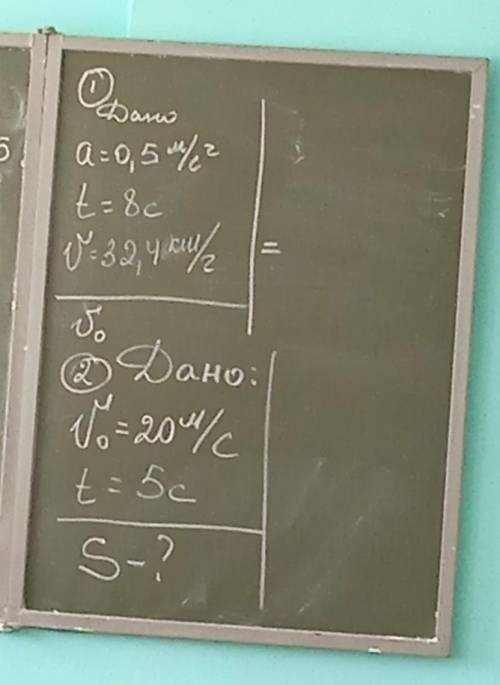 5
①
Дано
a=0,5 м/с²
t=8с
v=32,4 км/г =
v₀
② Дано:
v₀=20 м/с
t=5с
S-?